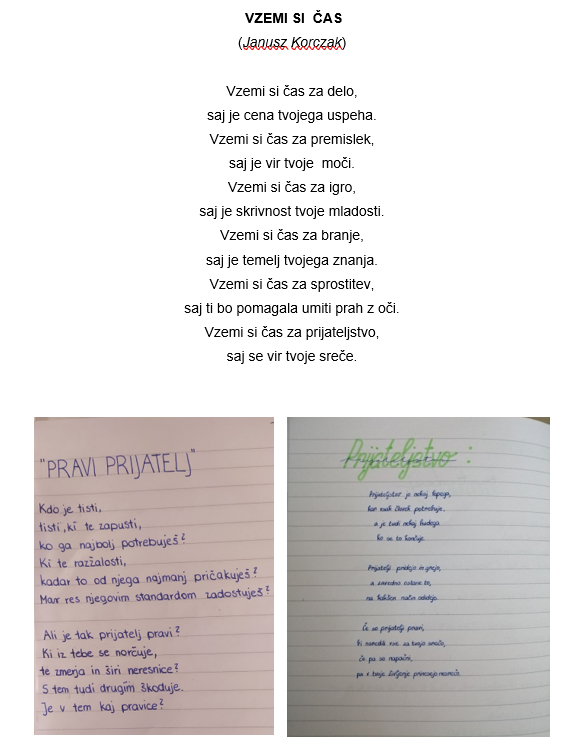 VZEMI SI  ČAS
(Janusz Korczak)
Vzemi si čas za delo,
saj je cena tvojega uspeha.
Vzemi si čas za premislek,
saj je vir tvoje  moči.
Vzemi si čas za igro,
saj je skrivnost tvoje mladosti.
Vzemi si čas za branje,
saj je temelj tvojega znanja.
Vzemi si čas za sprostitev,
saj ti bo pomagala umiti prah z oči.
Vzemi si čas za prijateljstvo,
saj se vir tvoje sreče.
"PRAVI PRIJATELJ"
Kdo je tisti,
tisti, ki te zapusti,
ko ga najbolj potrebuješ?
Ki te razžalosti,
kadar to od njega najmanj pričakuješ?
Mar res njegovim standardom zadostuješ?
Ali je tak prijatelj pravi?
Ki iz tebe se norčuje,
te zmerja in širi neresnice?
S tem tudi drugim škoduje.
Je v tem kaj pravice?
Prijateljstvo :
Prijateljstvo je nekaj lepega,
kar vsak človek potrebuje,
a je tudi nekaj hudega
ko se to končuje.
Prijatelji pridejo in grejo,
a vseeno ostane te,
na kakšen način odidejo.
Če so prijatelji pravi,
ki naredili vse za tvojo srečo,
če pa so napačni,
pa v tvoje življenje prinesejo nesrečo.